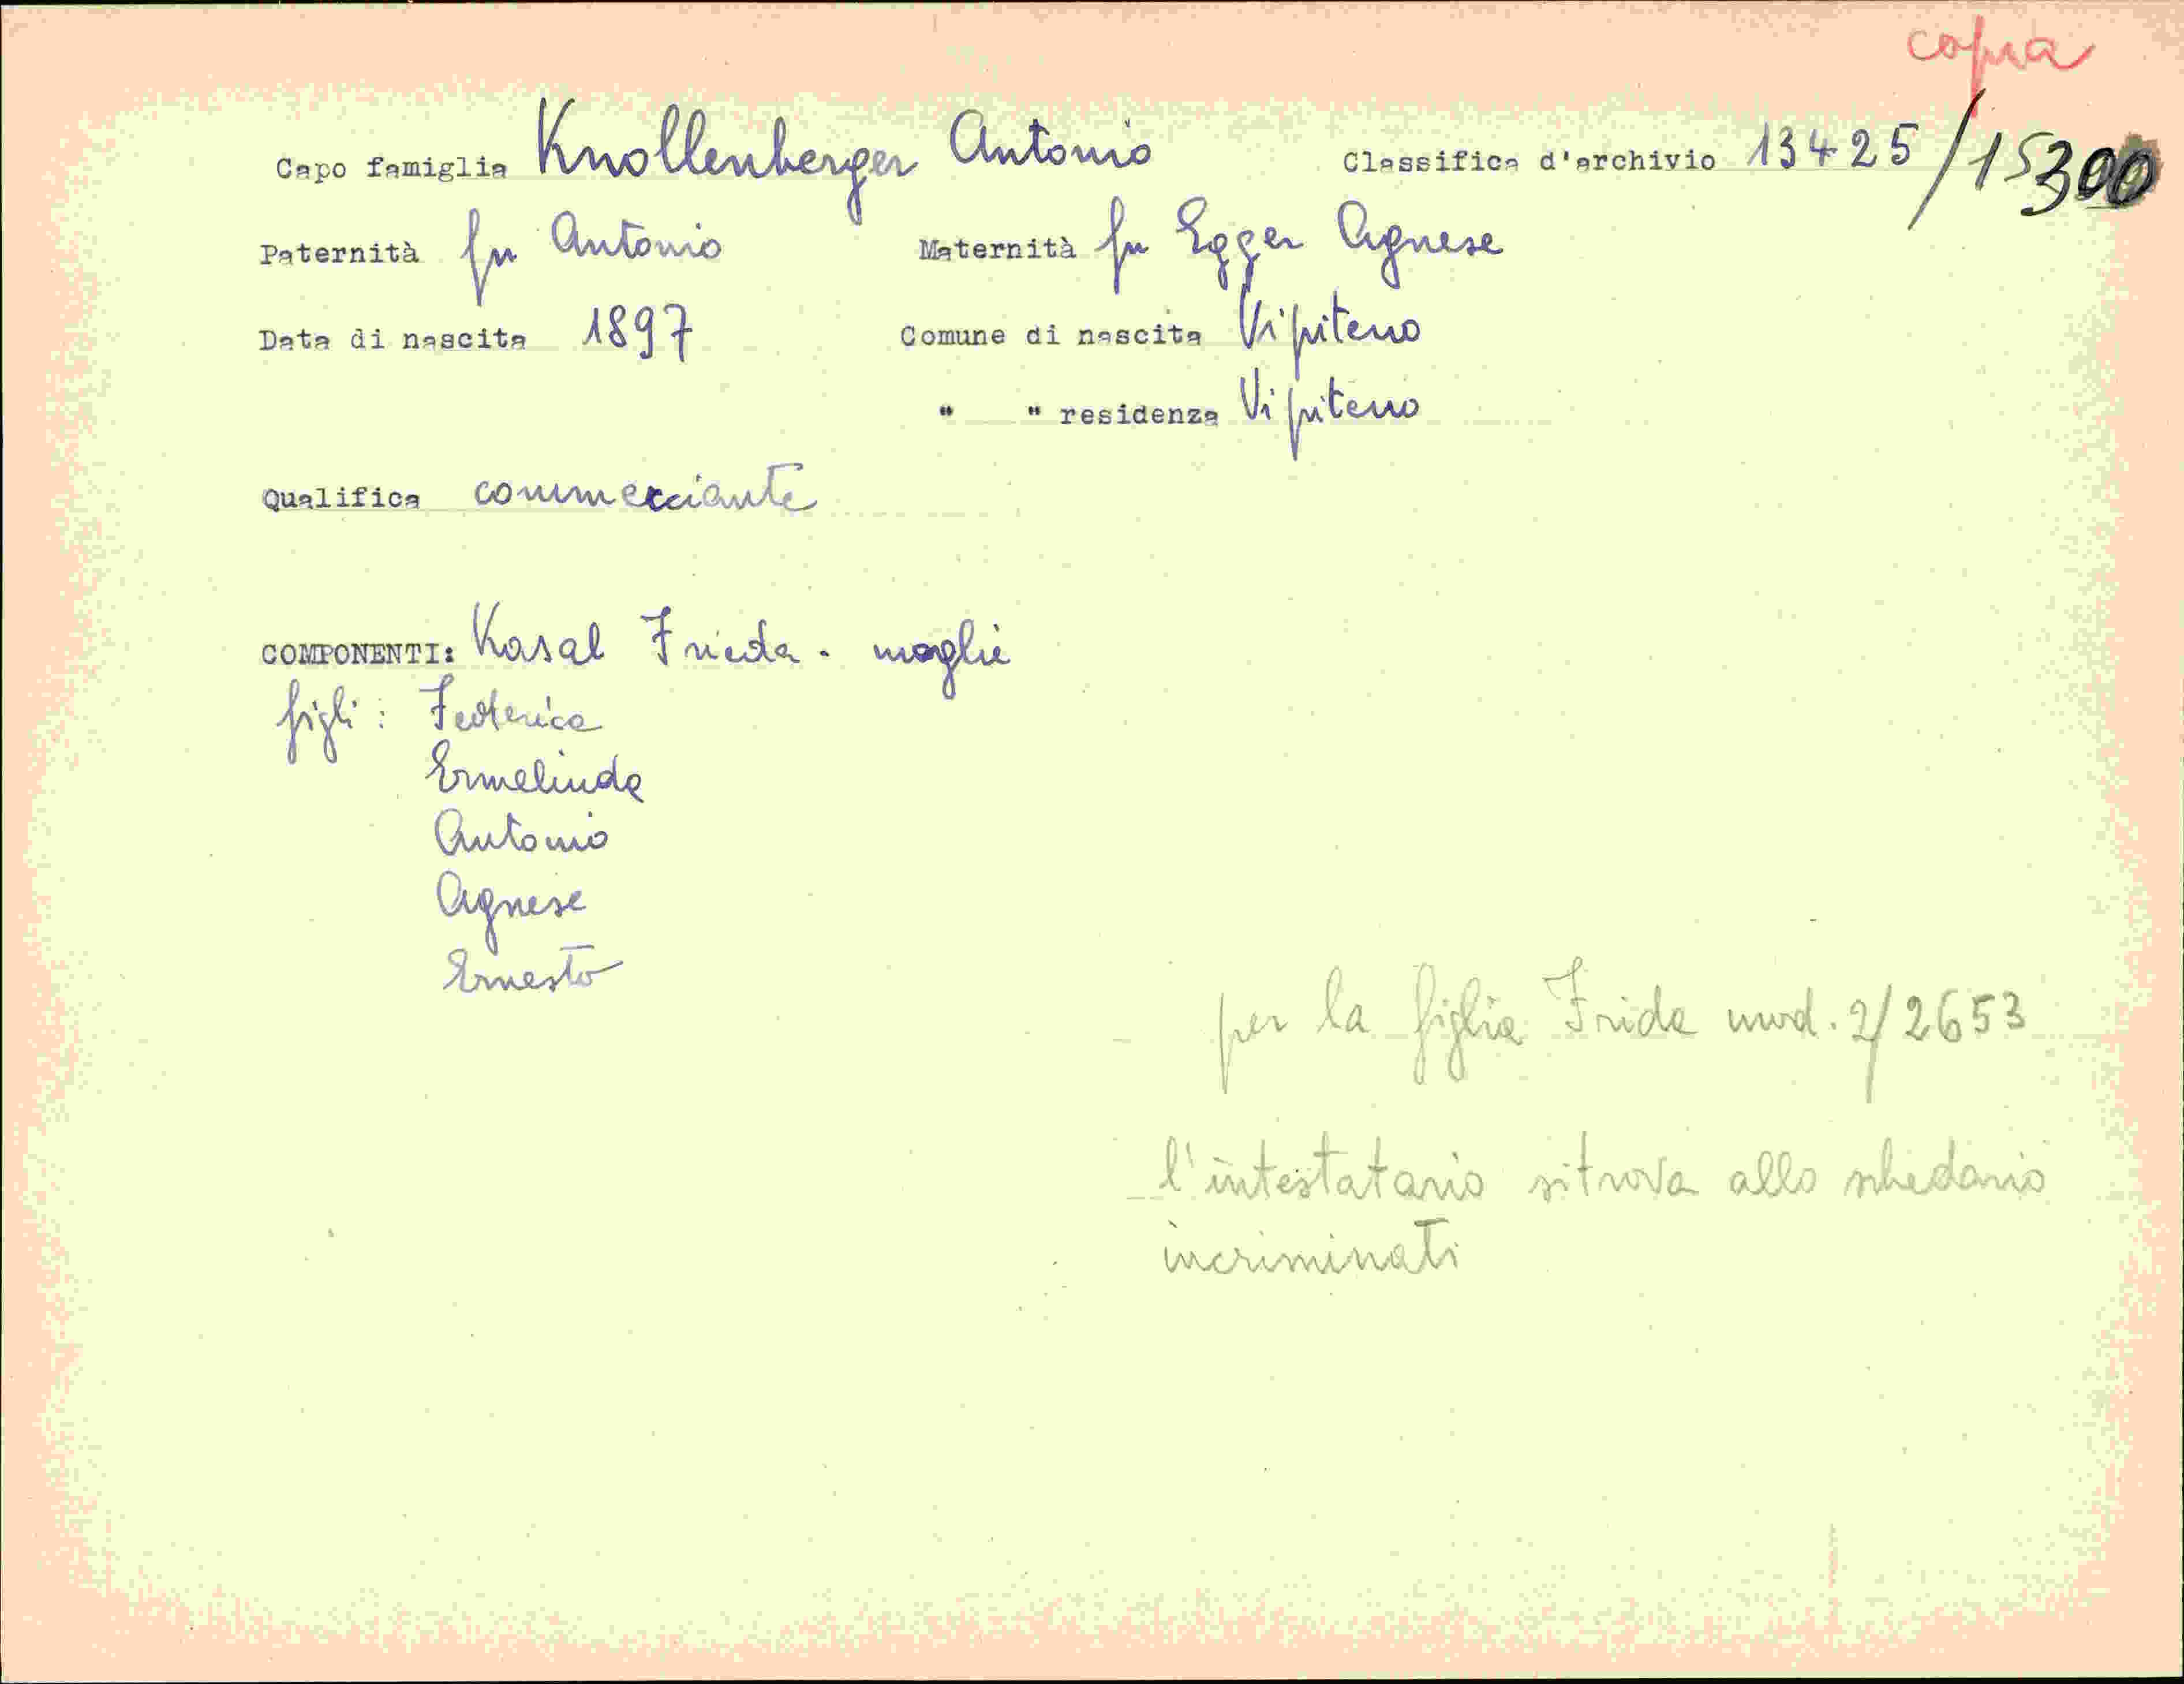 copia
Capo famiglia Knollenberger Antonio Classifica d'archivio 13425/15300
Paternità fu Antonio Maternità fu Egger Agnese
Data di nascita 1897 Comune di nascita Vipiteno
" " residenza Vipiteno
Qualifica commerciante
COMPONENTI: Kasal Frieda - moglie
figli: Federica
Ermelinda
Antonio
Agnese
Ernesto
per la figlia Frida mod. 2/2653
l'intestatario si trova allo schedario
incriminati